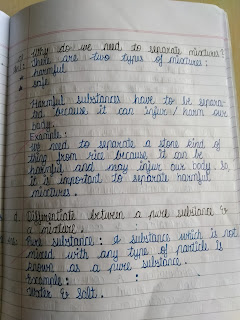 Why do we need to separate mixtures?
There are two types of mixtures:
harmful
safe
Harmful substances have to be separa-
ted because it can infure/harm our
body.
Example:
We need to separate a stone kind of
thing from rice because it can be
harmful and may infur our body. So
it is important to separate harmful
mixtures.
d. Differentiate between a pure substance &
a mixture.
Pure substance: A substance which is not
mixed with any type of particle is
known as a pure substance.
Example:
Water & Salt.